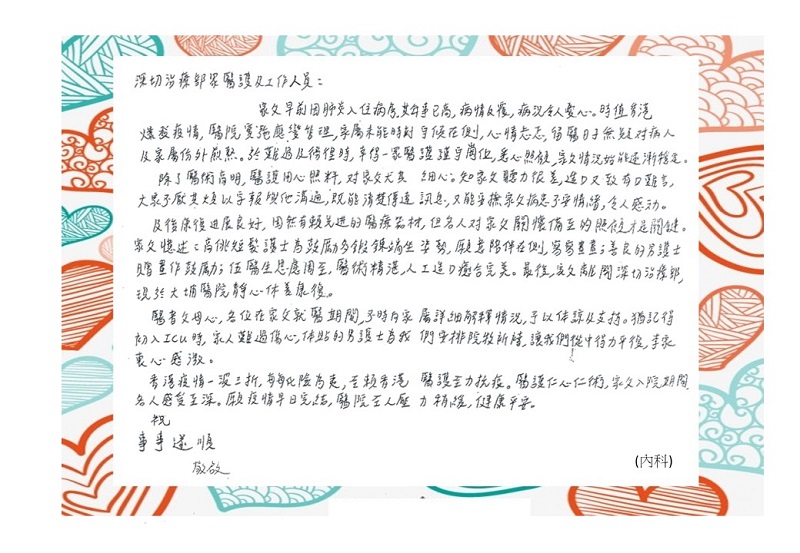 深切治療部眾醫護及工作人員：
家父早前因肺炎入住病房，其年事已高，病情反覆，病況令人憂心。時值香港
爆發疫情，醫院實施應變管理，家屬未能時刻守候在側，心情忐忑，留醫日子無疑對病人
及家屬倍外煎熬。於難過及徬徨時，幸得一眾醫護謹守崗位，悉心照顧，家父情況始能逐漸穩定。
除了醫術高明，醫護用心照料，對家父尤其細心。知家父聽力很差，進口又致有口難言，
大眾不厭其煩以字報與他溝通，既能清楚傳達訊息，又能安撫家父病患不安情緒，令人感動。
及後康復進展良好，固然有賴先進的醫療器材，但各人對家父關懷備至的照顧才是關鍵。
家父憶述：有位短髮護士為鼓勵多鍛鍊端坐姿勢，願意陪伴在側，寫寫畫畫；善良的男護士
贈畫作鼓勵；伍醫生思慮周全，醫術精湛，人工造口癒合完美。最後，家父離開深切治療部，
現於大埔醫院靜心休養康復。
醫者父母心，各位在家父就醫期間，不時向家屬詳細解釋情況，予以体諒及支持。猶記得
初入ICU時，家人難過傷心，体貼的男護士為我們安排院牧祈禱，讓我們從中得力平復，李家
衷心感激。
香港疫情一波三折，每每化險為夷，全賴香港醫護全力抗疫。醫護仁心仁術，家父入院期間
各人感受至深。願疫情早日完結，醫院全人壓力稍減，健康平安。
祝
事事遂順
敬啟
(內科)